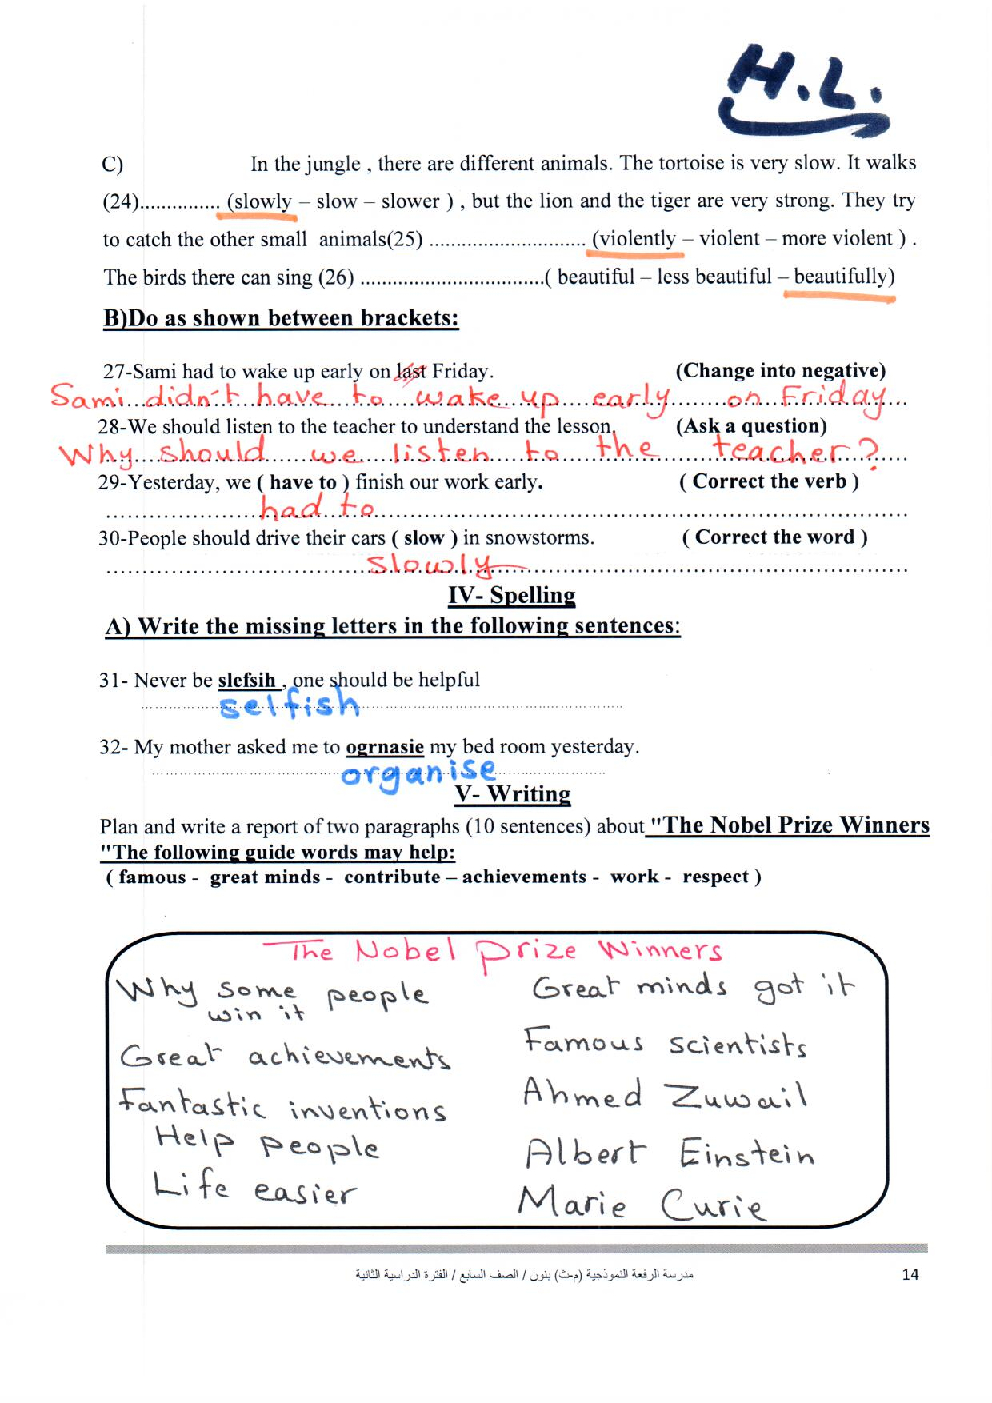 H.L.
C) In the jungle , there are different animals. The tortoise is very slow. It walks
(24)............... (slowly – slow – slower ) , but the lion and the tiger are very strong. They try
to catch the other small animals(25) ............................ (violently – violent – more violent ) .
The birds there can sing (26) .................................( beautiful – less beautiful – beautifully)
B)Do as shown between brackets:
27-Sami had to wake up early on last Friday. (Change into negative)
Sami didn't have to wake up early on Friday
28-We should listen to the teacher to understand the lesson. (Ask a question)
Why should we listen to the teacher?
29-Yesterday, we ( have to ) finish our work early. ( Correct the verb )
had to
30-People should drive their cars ( slow ) in snowstorms. ( Correct the word )
slowly
IV- Spelling
A) Write the missing letters in the following sentences:
31- Never be slefsih , one should be helpful
selfish
32- My mother asked me to ogrnasie my bed room yesterday.
organise
V- Writing
Plan and write a report of two paragraphs (10 sentences) about "The Nobel Prize Winners
"The following guide words may help:
( famous - great minds - contribute – achievements - work - respect )
The Nobel Prize Winners
Why some people
win it
Great achievements
Fantastic inventions
Help people
Life easier
Great minds got it
Famous scientists
Ahmed Zuwail
Albert Einstein
Marie Curie
مدرسة الرفعة النموذجية (م-ث) بنون / الصف السابع / الفترة الدراسية الثانية
14